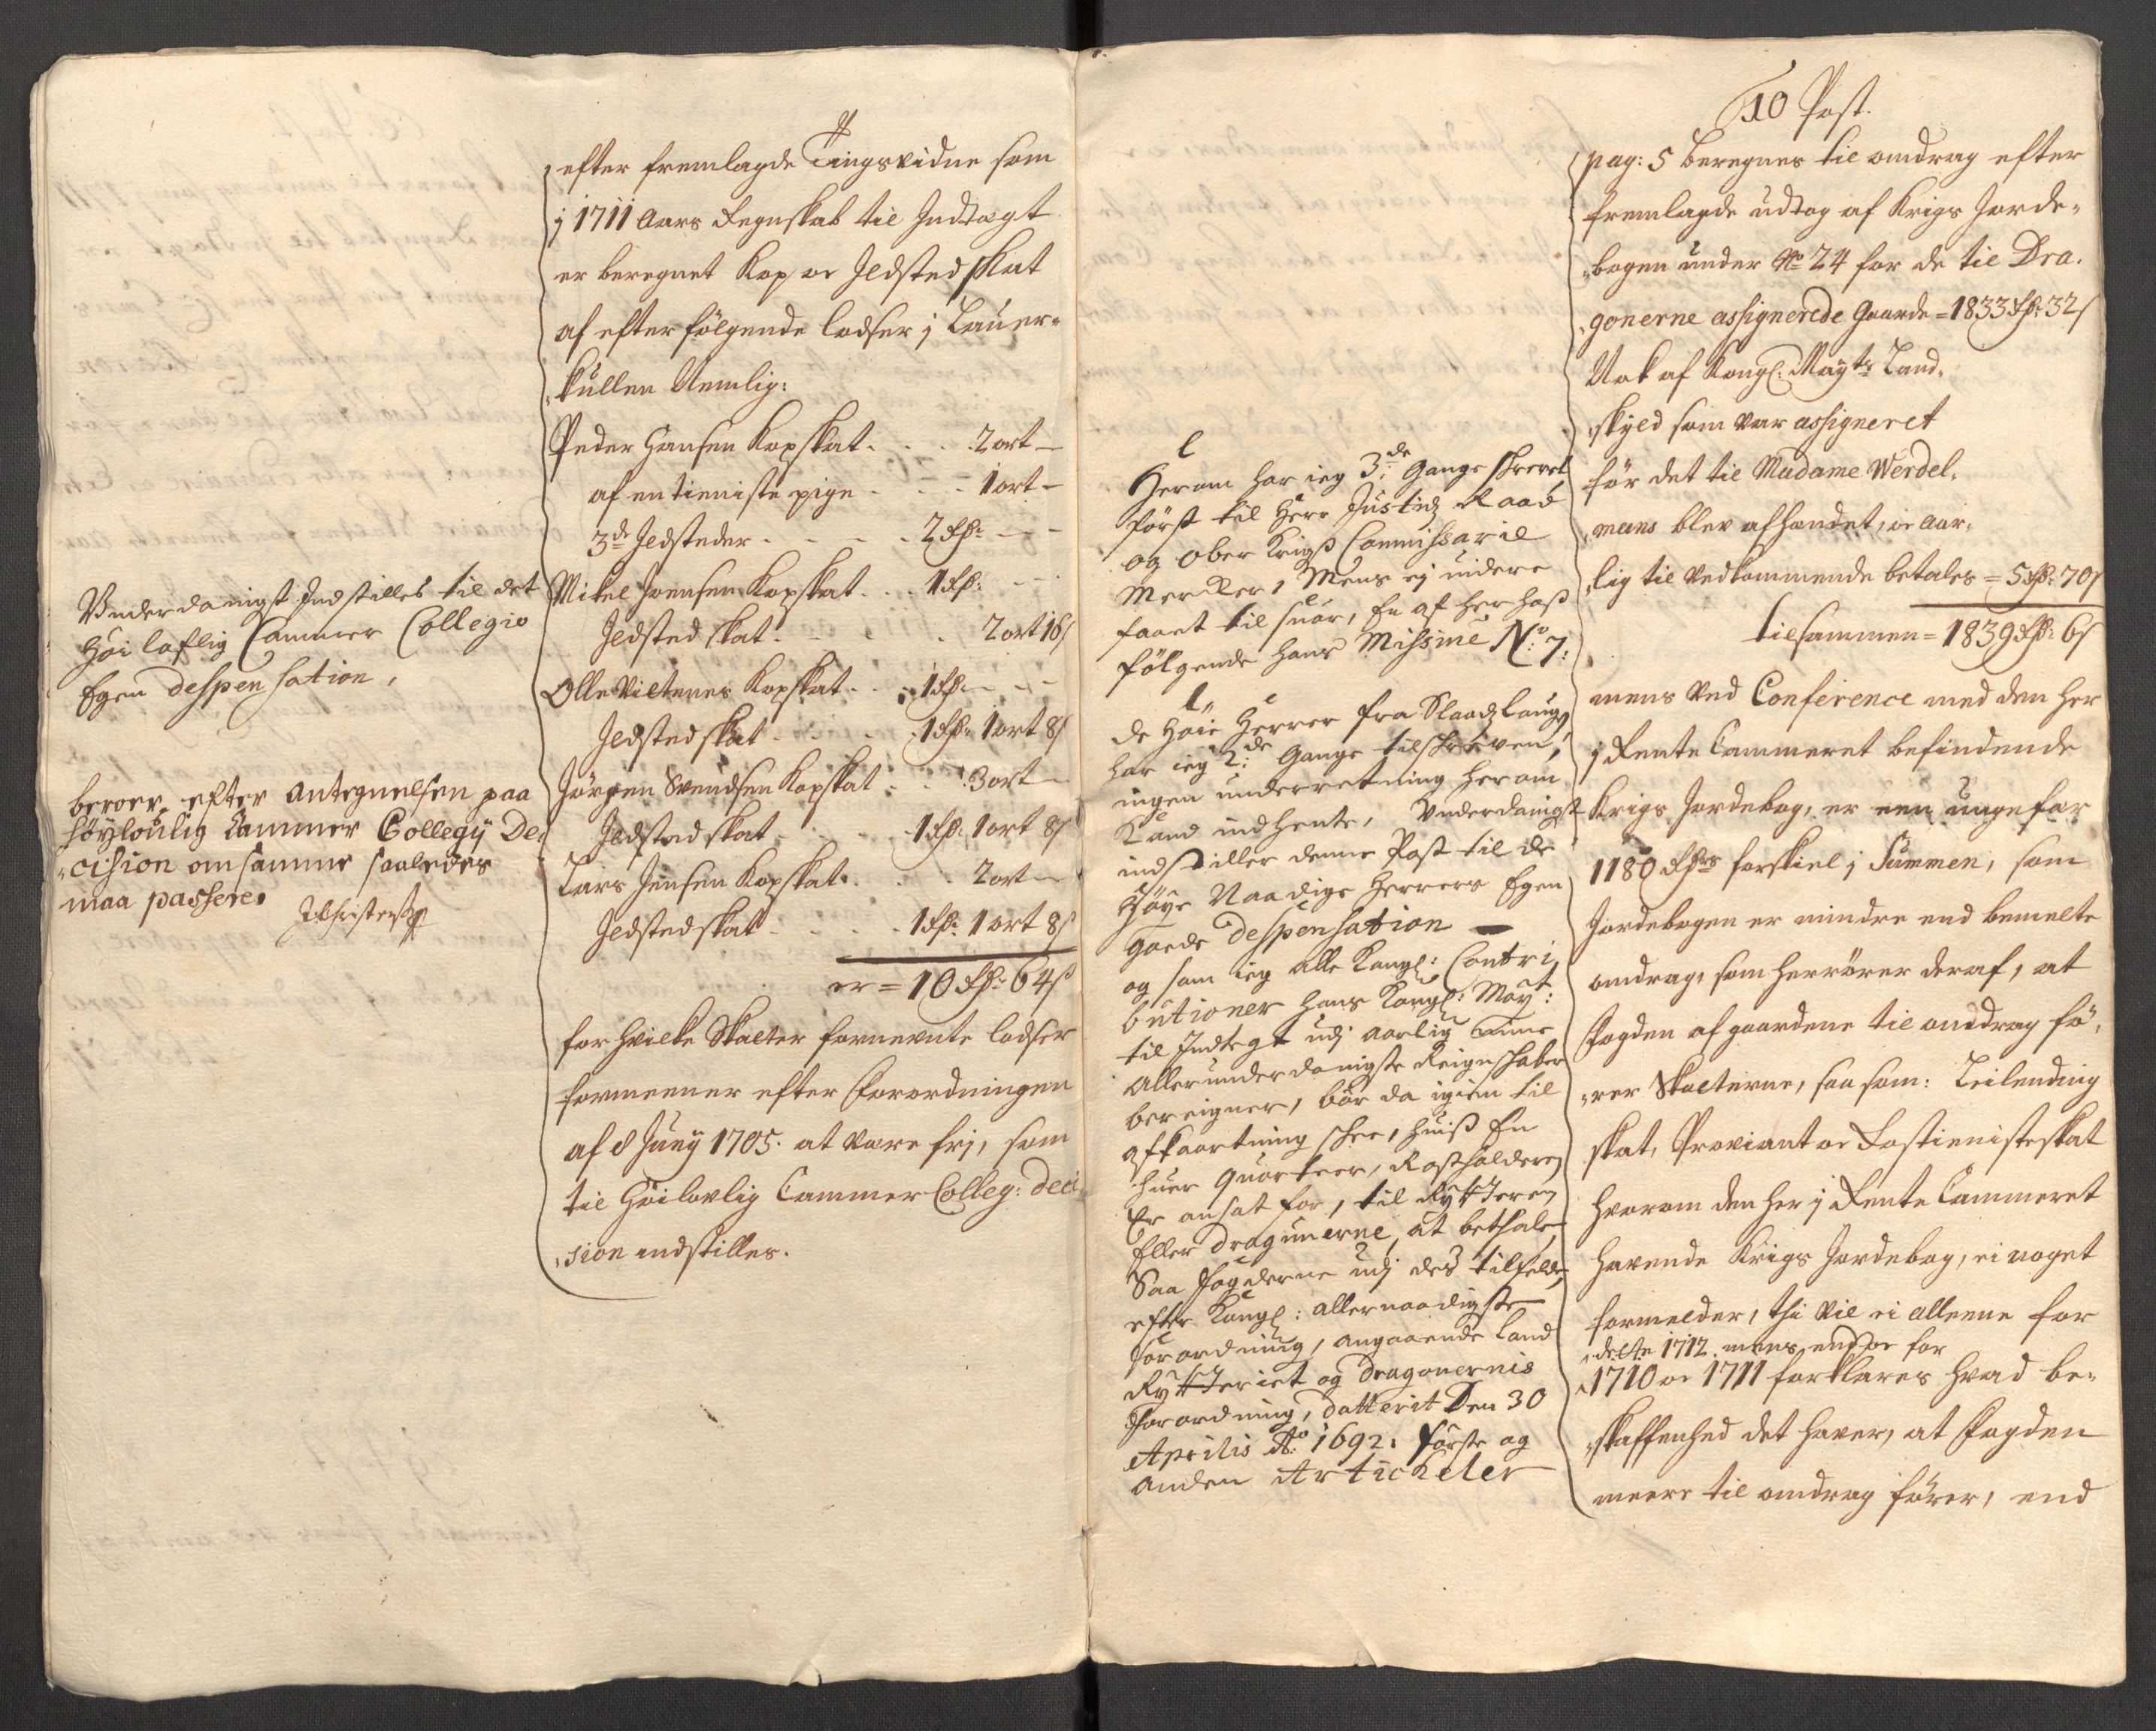 efter fremlagde Tingsvidne som
j 1711 Aars Regnskab til Indtægt
er beregnet Kop oc Ildsted Skat
af efterfølgende lodser j Lauer-
kullen Nemlig:
Peder Hansen Kopskat . . . . 2 ort —
af en tieniste pige . . . 1 ort —
3de Ildsteder . . . . 2 Rd: — —
Mikel Svensen Kopskat . . 1 Rd: — —
Ildsted skat . . . . 2 ort 16 s
Olle Kopskat . . . 1 Rd: — —
Ildsted skat . . . . 1 Rd: 1 ort 8 s
Jörgen Svendsen Kopskat . . . 3 ort —
Ildsted skat . . . . 1 Rd: 1 ort 8 s
Lars Jensen Kopskat . . . . 2 ort —
Ildsted skat . . . . 1 Rd: 1 ort 8 s
er = 10 Rd: 64 s
for hvilke Skatter fornevnte lodser
formeener efter Forordningen
af 8 Juny 1705. at være fri, som
til Höilovlig Cammer Colleg: deci-
sion indstilles.
Underdanigst Indstilles til det
Höi loflig Cammer Collegio
Egen despensation,
beroer efter Antegnelsen paa
höyloulig Cammer Collegy De-
cision om samme saaledes
maa passere.
10 Post.
pag: 5 beregnes til omdrag efter
fremlagde udtog af Krigs Jorde-
bogen under No 24 for de til Dra-
gonerne assignerede Gaarde = 1833 Rd: 32 s
Nok af Kongl. Mayts Land-
skyld som var assigneret
för det til Madame Werdel-
mans blev afhandet, oc Aar-
lig til Vedkommende betales = 5 Rd: 70 s
tilsammen = 1839 Rd: 6 s
mens Ved Conference med den her
j Rente Cammeret befindende
Krigs Jordebog, er een ungefær
1180 Rdrs forskiel j Summen, som
Jordebogen er mindre end bemelte
omdrag, som herrörer deraf, at
Fogden af gaardene til omdrag fö-
rer Skatterne, saa som: Leilending
skat, Proviant oc Rostieniste skat
hvorom den her j Rente Cammeret
havende Krigs Jordebog, ei noget
formelder, thi vil ei alleene for
dette 1712. mens endoc for
1710 oc 1711 forklares hvad be-
skaffenhed det haver, at Fogden
meere til omdrag förer, end
Herom har ieg 3de Gange skrevet
först til Herr Justitz Raad
og Ober Krigs Commissarie
Mercker, Mens ej videre
faaet til suar, En af her hoß
fölgende hans Missive No: 7:
de Höie Herrer fra Slaadz laug
har ieg 2de Gange tilskreven,
ingen underretning herom
Kand indhente, Underdanigst
indstiller denne Post til de
Höye Naadige Herrers Egen
goede despensation —
og som ieg alle Kongl: Contri-
butioner hans Kongl: Mayt:
til Indtegt udj aarlig
Allerunderdanigste Reignschaber
bereigner, bör da igien til
afkaartning schee, huis En
huer Quarteer, Rosholderen
Er ansat for, til Rytteren
Eller dragunerne, at betahle,
Saa fogderne udj des tilfelde
efter Kongl: allernaadigste
forordning, angaaende Land
Rytteriet og Dragonernis
forordning, datterit Den 30
Aprilis Ao 1692. förste og
anden Artickeler